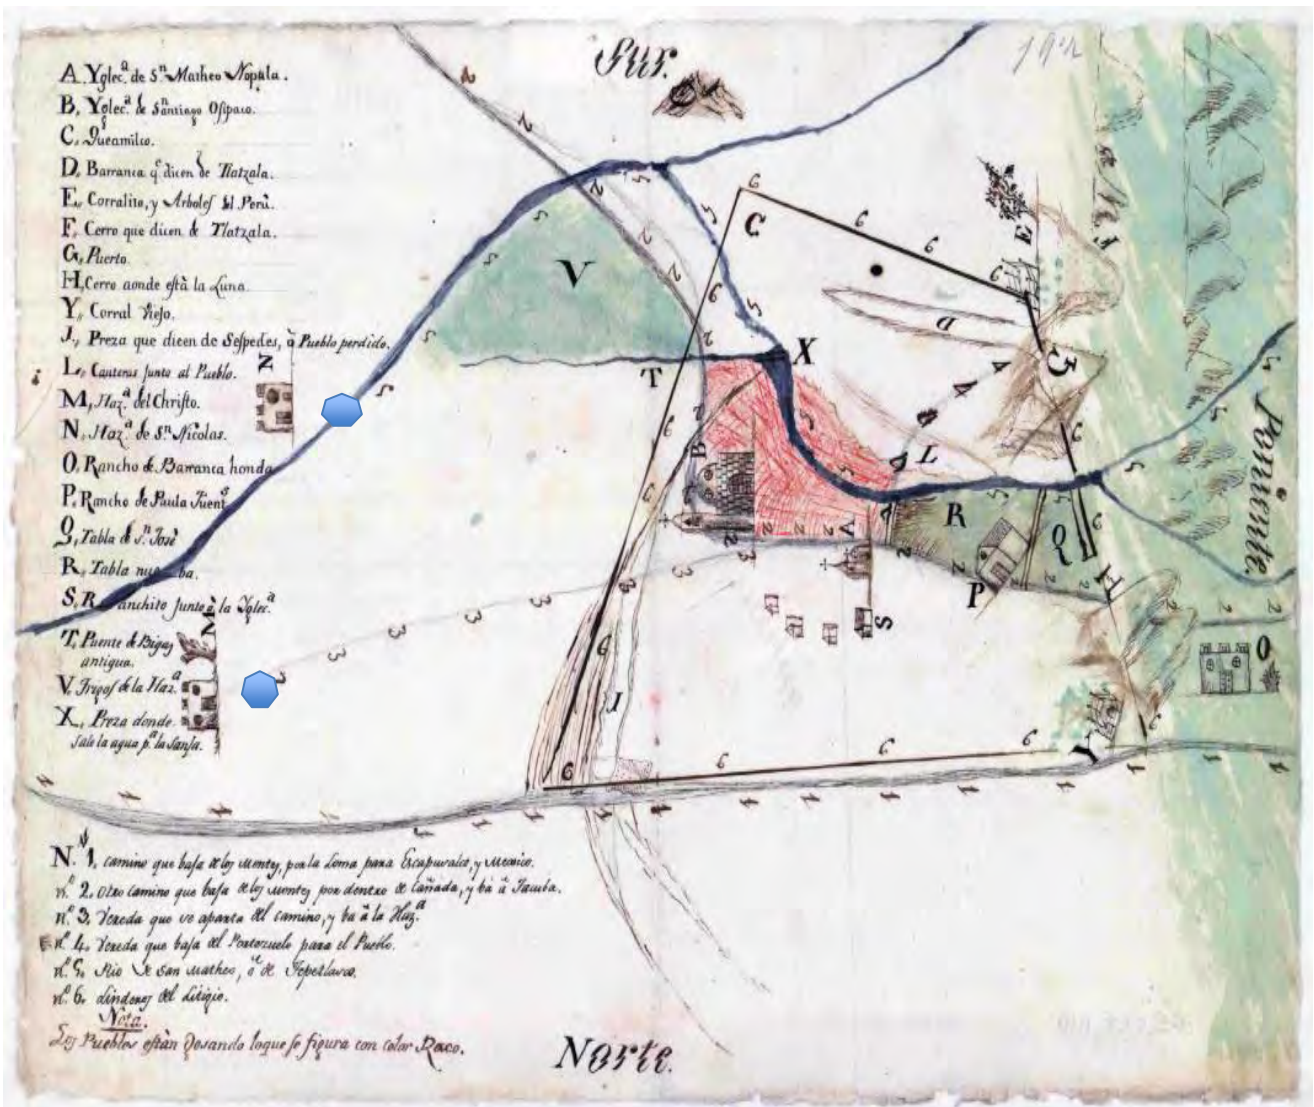 Sur.
192
A. Yglec.ª de S.n Matheo Nopala.
B, Yglec.ª de Santiago Osipaco.
C,
D, Barranca q.e dicen de Tlatzala.
E, Corralito, y Arboles del Perù.
F, Cerro que dicen de Tlatzala.
G, Puerto.
H, Cerro aonde està la Luna
Y, Corral Viejo.
J, Preza que dicen de Sespedes, ò Pueblo perdido.
L, Canteras junto al Pueblo.
M, Haz.ª del Christo.
N, Haz.ª de S.n Nicolas.
O, Rancho de Barranca honda
P, Rancho de Paula
Q, Tabla de S.n Josè
R, Tabla
S, Ranchito junto à la Yglec.ª
T, Puente de Bigas
antigua.
V, Trigos de la Haz.ª
X, Preza donde
sale la agua p.ª la Sanja.
N
M
V
T
X
C
E
F
a
L
B
A
R
Q
P
S
H
O
Y
J
Poniente.
N. 1, camino que baja de los montes, por la Loma para Escapusalco, y Mexico.
n.º 2, Otro camino que baja de los montes por dentro de Cañada, y bà à Tacuba.
n.º 3, Vereda que se aparta del camino, y ba à la Haz.ª
n.º 4, Vereda que baja del Portezuelo para el Pueblo.
n.º 5, Rio de San Matheo, ò de Tepetlaxco.
n.º 6, Linderos del Litigio.
Nota.
Los Pueblos estàn gosando loque se figura con color Roxo.
Norte.